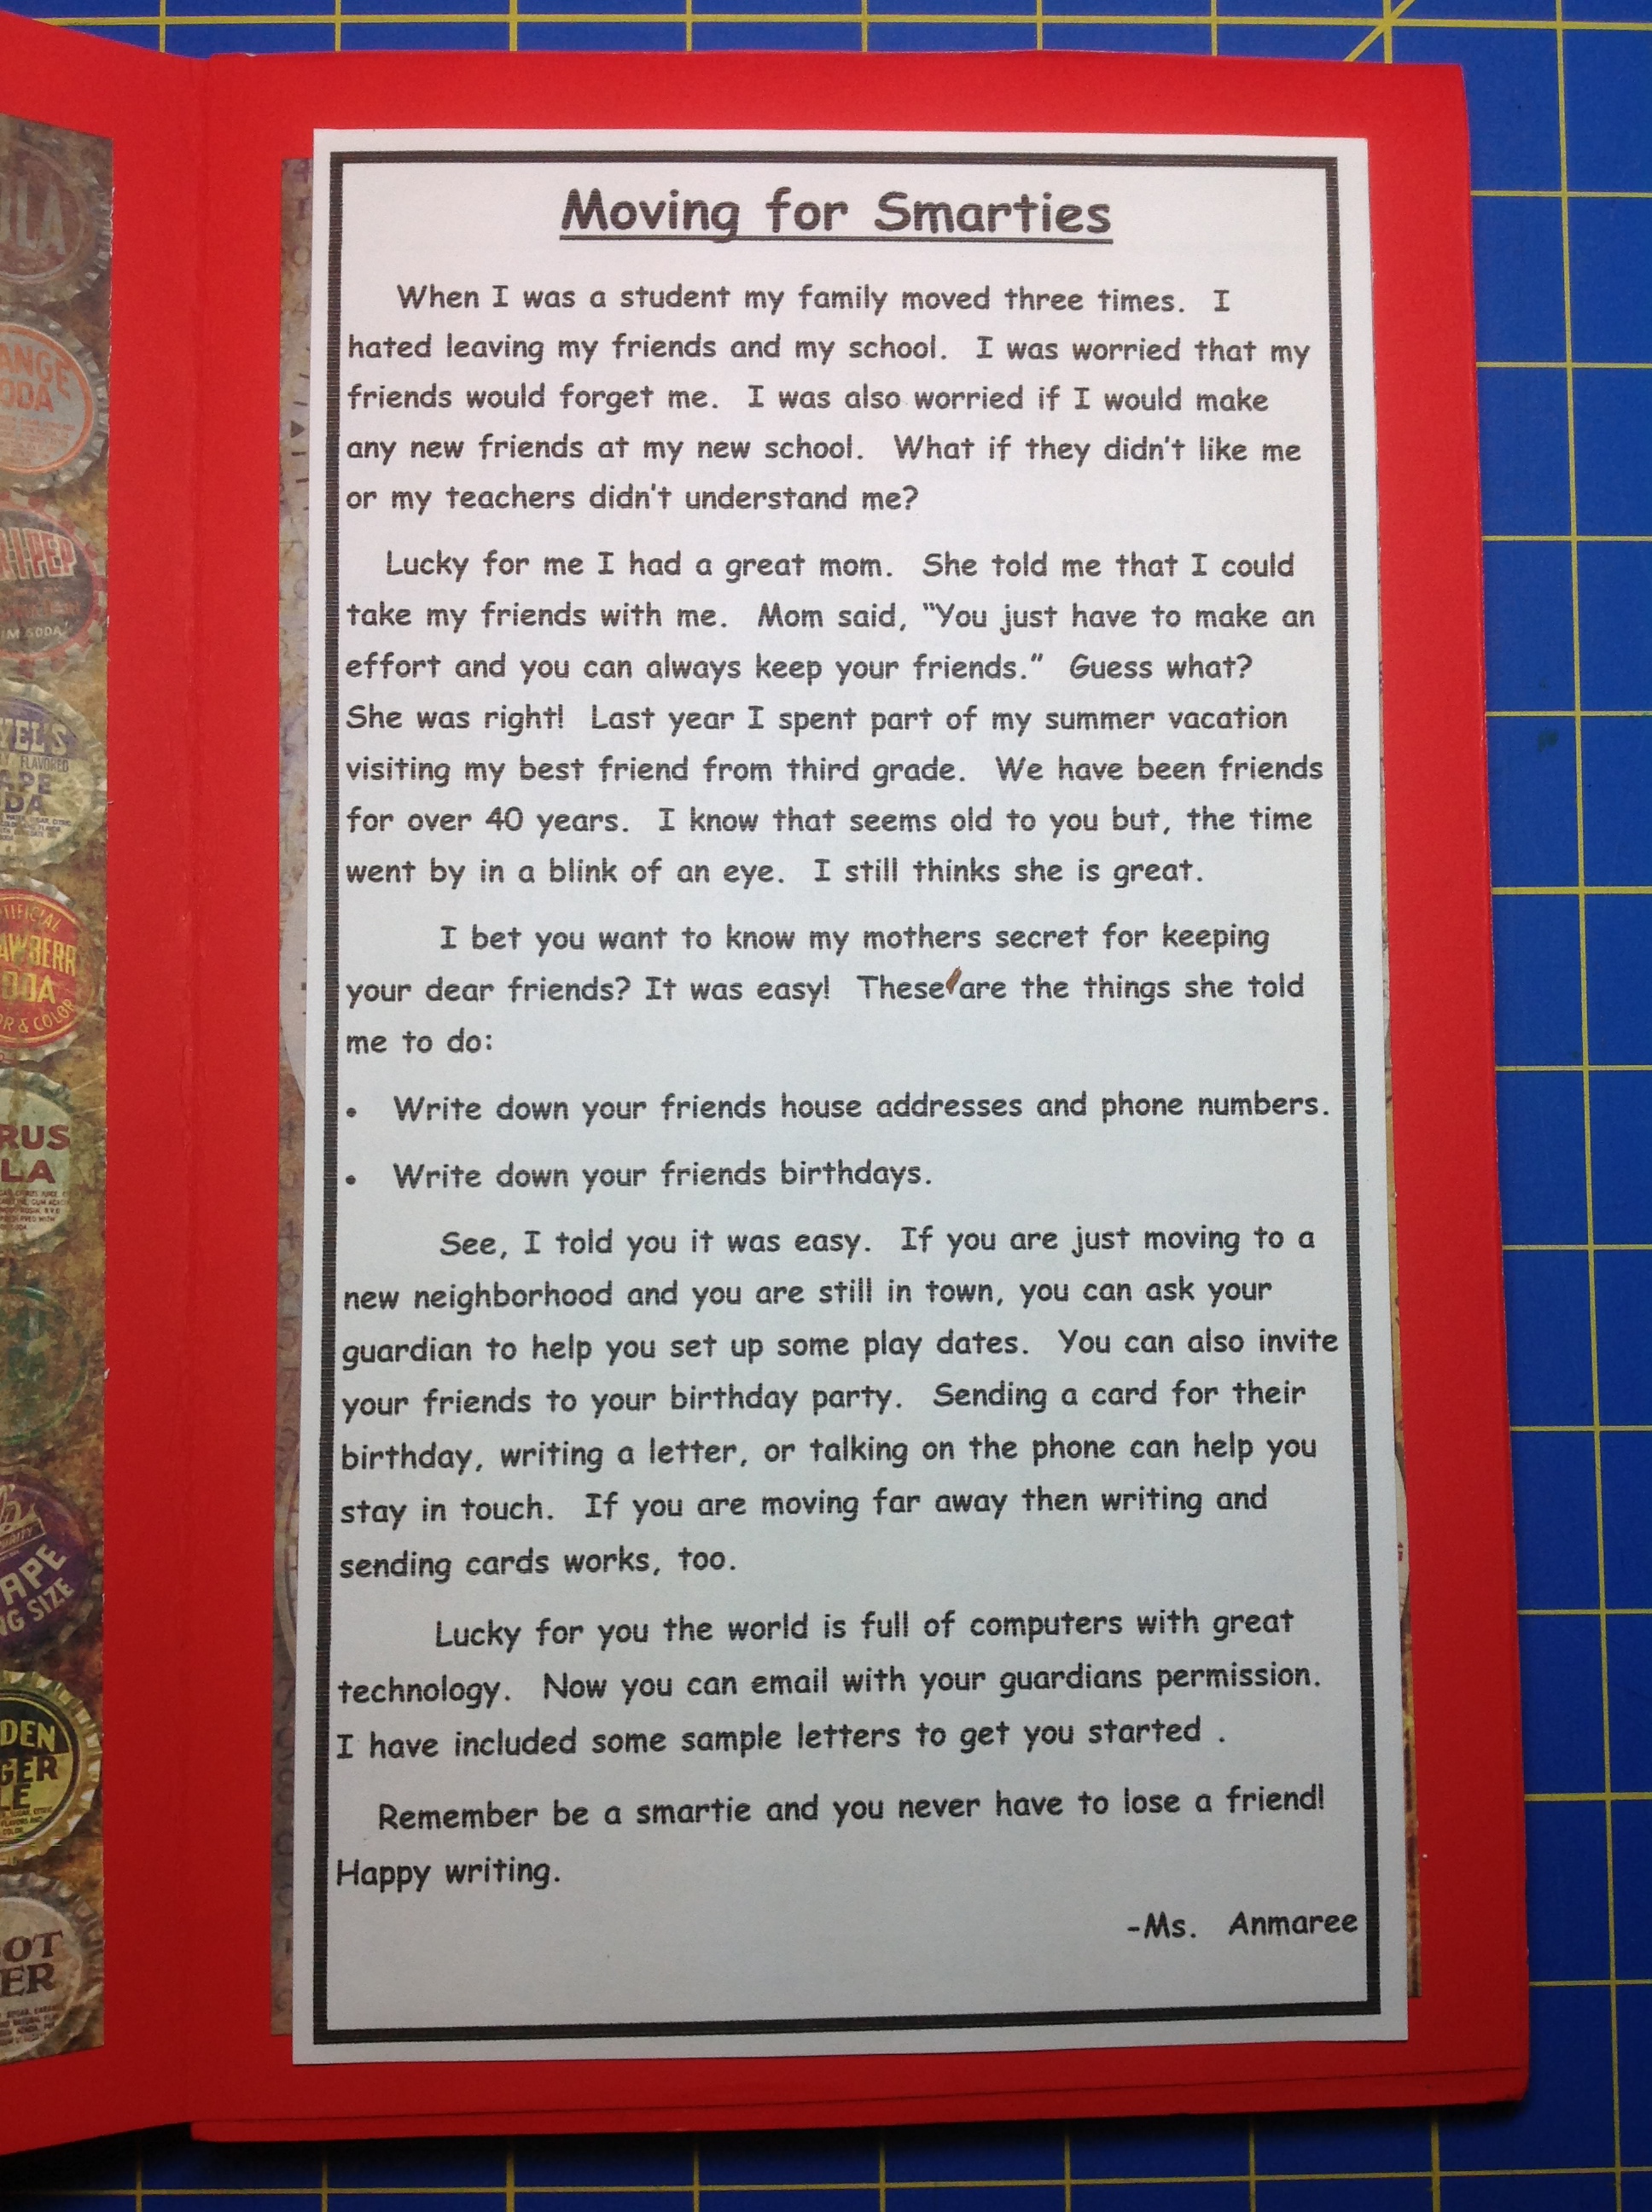 Moving for Smarties
When I was a student my family moved three times. I
hated leaving my friends and my school. I was worried that my
friends would forget me. I was also worried if I would make
any new friends at my new school. What if they didn't like me
or my teachers didn't understand me?
Lucky for me I had a great mom. She told me that I could
take my friends with me. Mom said, “You just have to make an
effort and you can always keep your friends.” Guess what?
She was right! Last year I spent part of my summer vacation
visiting my best friend from third grade. We have been friends
for over 40 years. I know that seems old to you but, the time
went by in a blink of an eye. I still thinks she is great.
I bet you want to know my mothers secret for keeping
your dear friends? It was easy! These are the things she told
me to do:
• Write down your friends house addresses and phone numbers.
• Write down your friends birthdays.
See, I told you it was easy. If you are just moving to a
new neighborhood and you are still in town, you can ask your
guardian to help you set up some play dates. You can also invite
your friends to your birthday party. Sending a card for their
birthday, writing a letter, or talking on the phone can help you
stay in touch. If you are moving far away then writing and
sending cards works, too.
Lucky for you the world is full of computers with great
technology. Now you can email with your guardians permission.
I have included some sample letters to get you started .
Remember be a smartie and you never have to lose a friend!
Happy writing.
-Ms. Anmaree